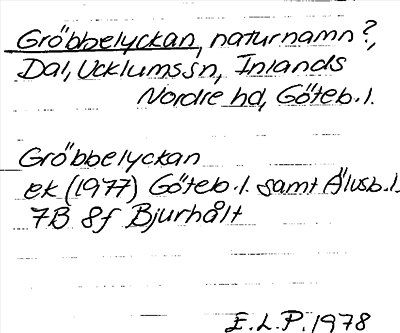 Gröbbelyckan, naturnamn?,
Dal, Ucklums sn, Inlands
Nordre hd, Göteb. l.
Gröbbelyckan
ek (1977) Göteb. l. samt Älvsb. l.
7B 8f Bjurhålt
E.L.P. 1978